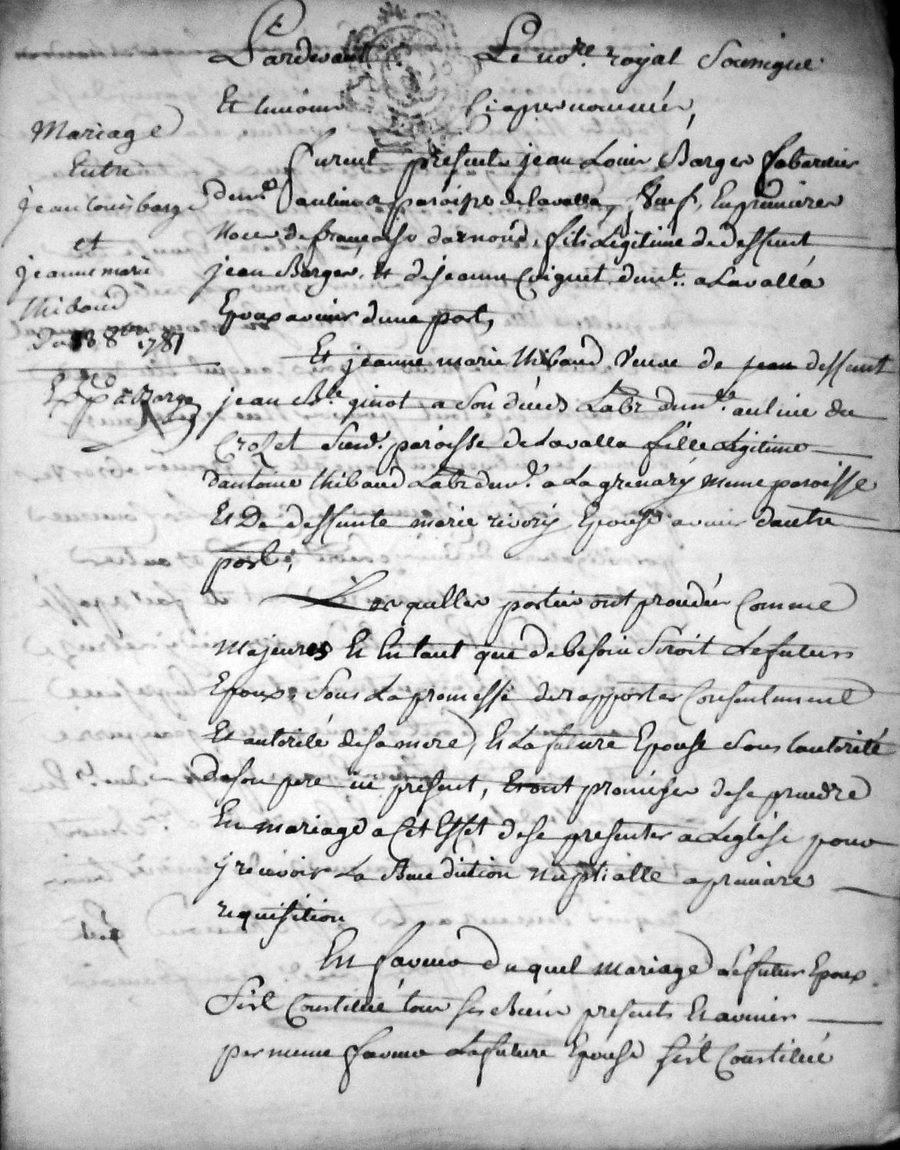 Pardevant Le no.re royal Soussigné
Et temoins Ci apres nommés,
Mariage
Entre
jean louis barge
et
jeanne marie
thibaud
Du 8bre 1781
Exp.é a Barge
furent presents jean Louis Barges
demt. paroisse de lavalla, veuf, En premieres
Noce de françoise darnoud, fils Légitime de deffunt
jean Barges, et de jeanne Coignet demt. a Lavalla
Epoux avenir dune part,
Et jeanne marie thibaud veuve de jean deffunt
jean Bte ginot a Son décès Labr demt. au lieu du
Crozet Susd. paroisse de Lavalla fille Légitime
dantoine thibaud Labr demt. a La grenary meme paroisse
Et De deffunte marie rivory, Epouse avenir dautre
part,
Lesquelles parties ont proceder Comme
Majeures Et En tant que de besoin Seroit Le futurs
Epoux Sous La promesse de rapporter Consentement
Et autorité de sa mere, Et La future Epouse Sous lautorité
de son pere ici présent, Et ont promises de se prendre
En mariage a Cet Effet de se presenter a Leglise pour
y recevoir La Benediction Nuptialle a premiere
requisition
En faveur Duquel mariage Le futur Epoux
Sest Constitué tous ses Biens presents Et avenirs
par meme faveur La future Epouse sest Constitué